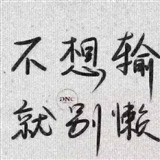 不想输
DNC
就别懒